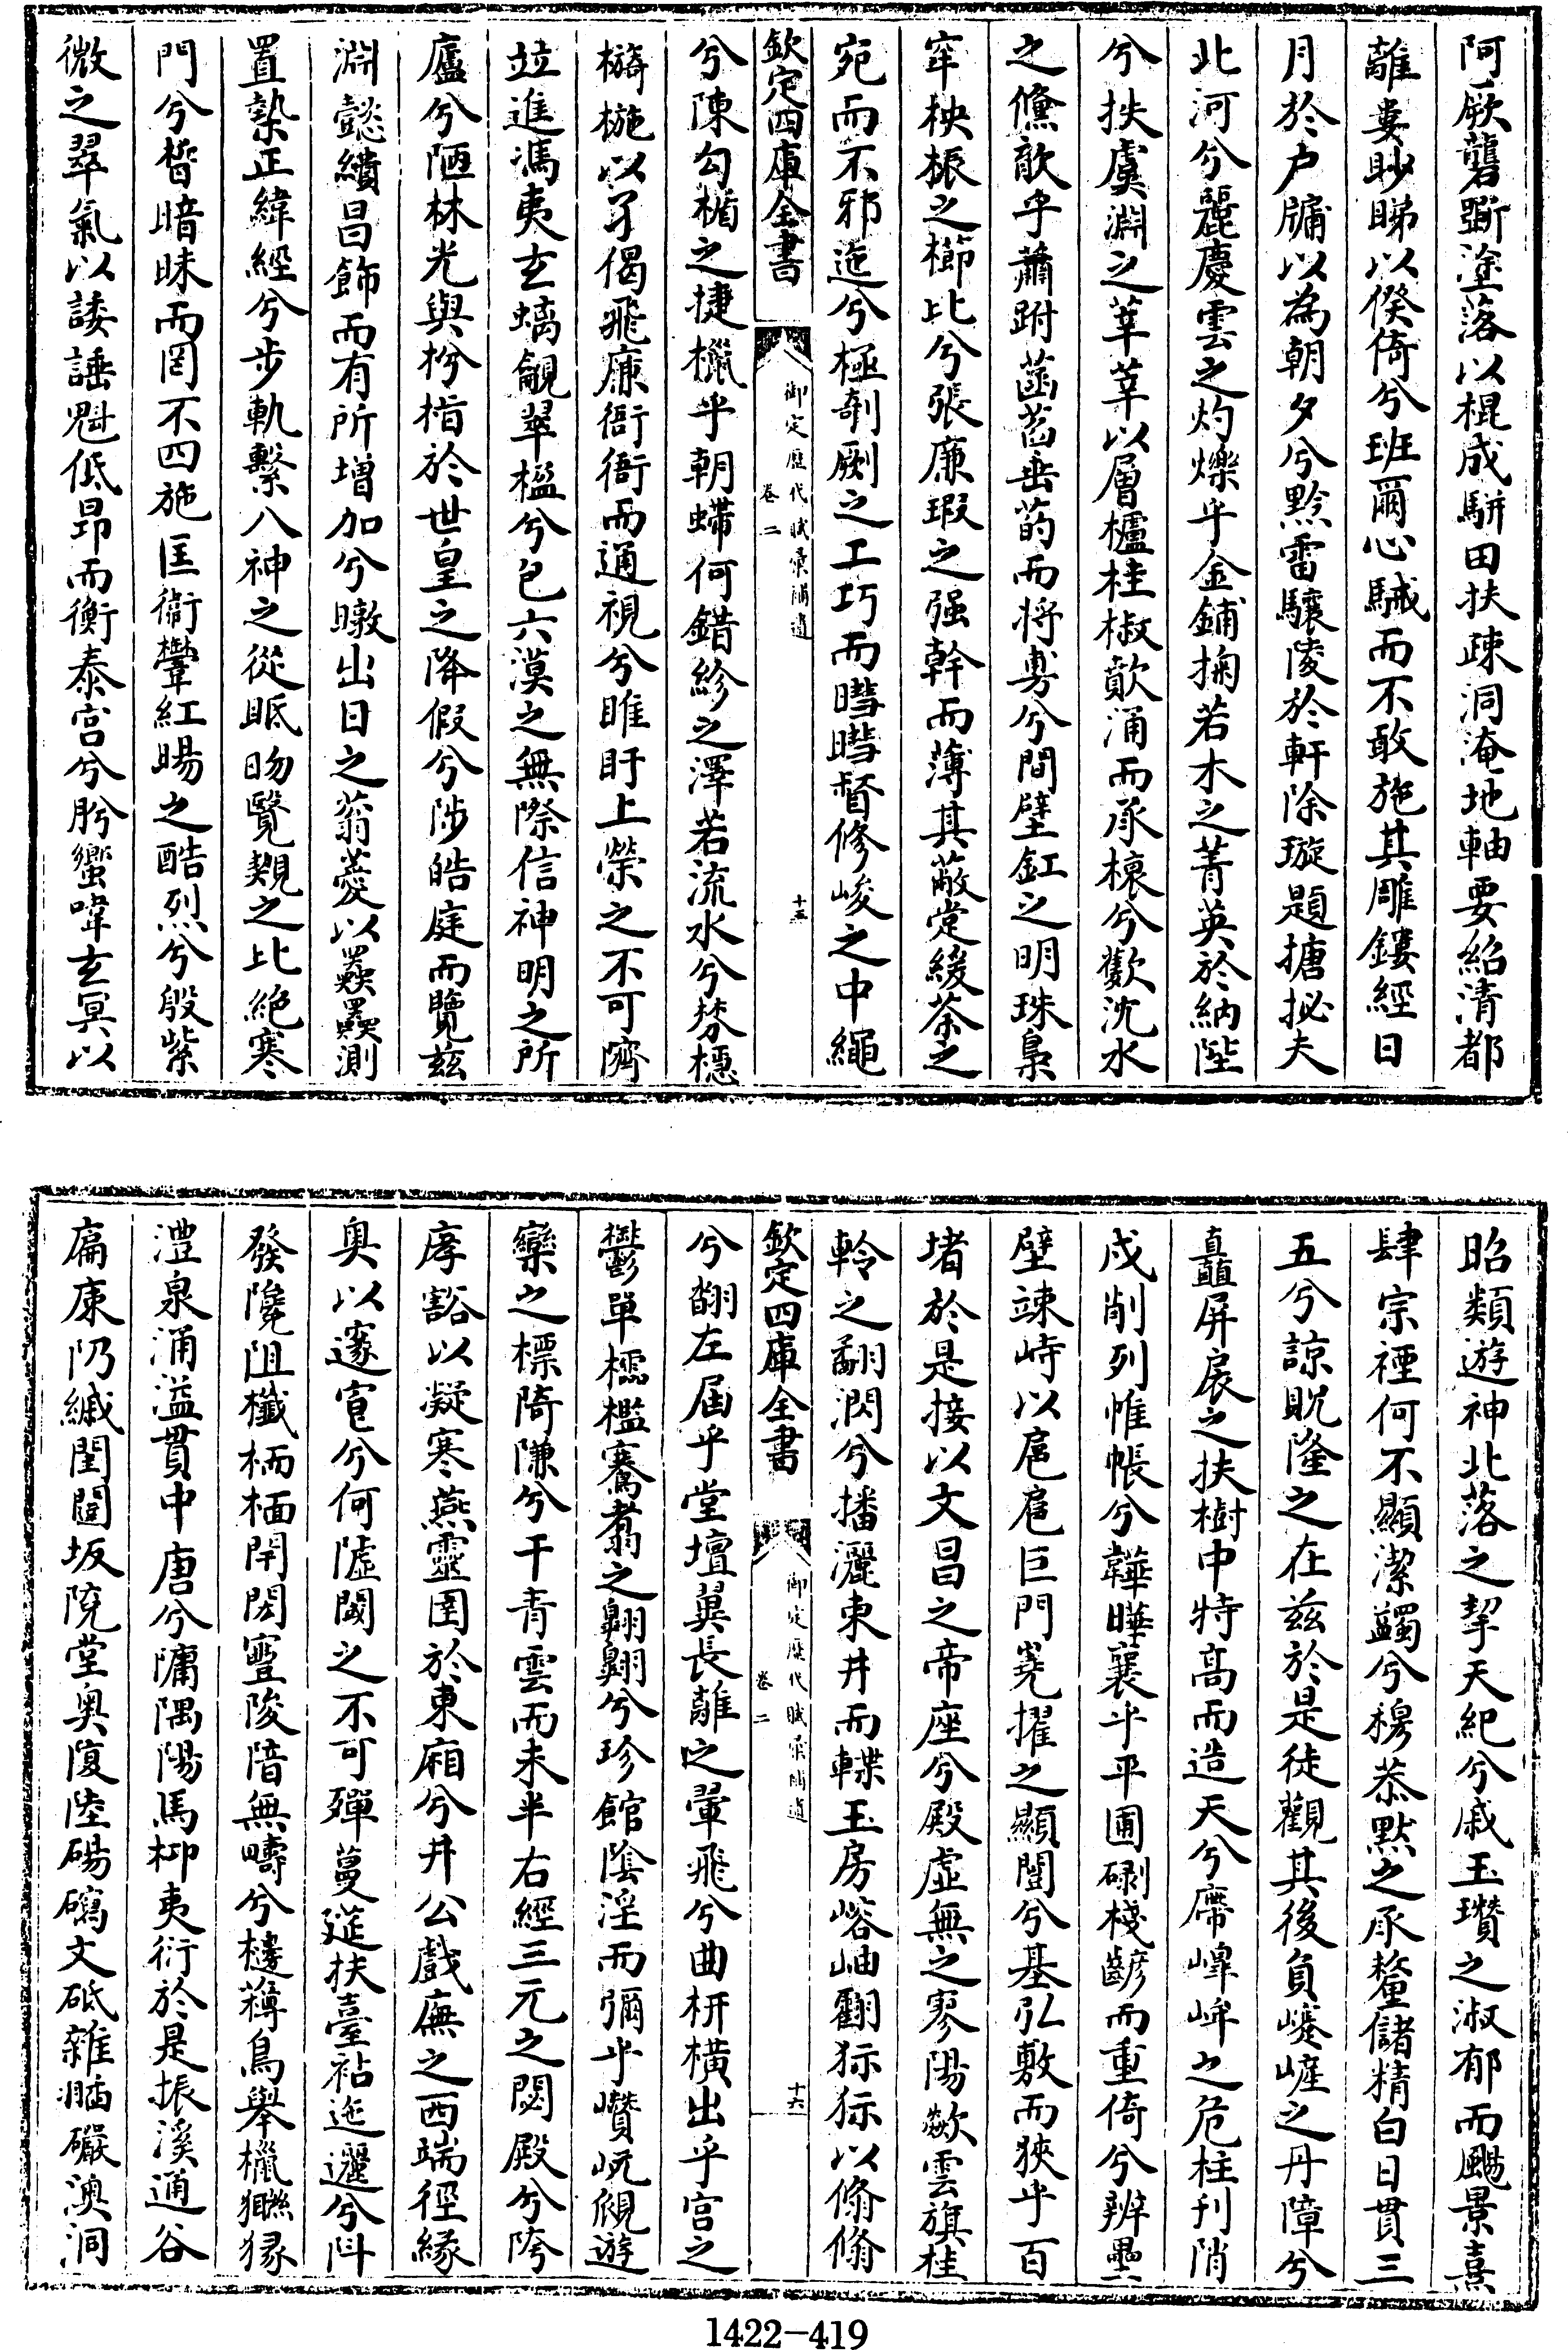 阿厥礱斲塗落以棍成駢田扶疎洞淹地軸要紹清都
離婁眇睇以傒倚兮班爾心駴而不敢施其雕鏤經日
月於户牖以為朝夕兮黔雷驤陵於軒除璇題搪挐夫
北河兮麗慶雲之灼爍乎金鋪掬若木之菁英於納陛
兮抶虞淵之莘莘以層櫨桂椒歕涌而承榱兮歡沈水
之儵歆乎蕭跗菡萏垂菂而將旉兮間壁釭之明珠臬
牢柍桭之櫛比兮張廉瑕之强幹而薄其蔽棠緩茶之
宛而不邪迤兮極剞劂之工巧而暳暳督修峻之中繩
欽定四庫全書
御定歷代賦彙補遺
卷二
十五
兮陳勾楯之捷櫼乎朝蠕何錯紾之澤若流水兮棼櫋
檹柂以孑偈飛廉衙衙而通視兮睢盱上榮之不可隮
竝進馮夷玄螭龥翠楹兮包六漠之無際信神明之所
廬兮陋林光與枌楷於世皇之降假兮陟皓庭而覽兹
淵懿繢昌飾而有所增加兮暾出日之蓊薆以㒤㒤測
置槷正緯經兮步軌繫八神之從眡昒覽覿之比絶寒
門兮晢暗昧而罔不四施匡衞鸞紅暘之酷烈兮殷紫
微之翠氣以諉諈魁低昂而衡泰宫兮肸蠁㖞玄冥以
昭類遊神北落之挈天紀兮戚玉瓚之淑郁而颺景熹
肆宗禋何不顯潔蠲兮穆恭默之承釐儲精白日貫三
五兮諒貺隆之在兹於是徒觀其後負嵯㟬之丹障兮
矗屏扆之扶樹中特高而造天兮㡘嶂崪之危柱刋陗
戍削列帷帳兮韡曄襄乎平圃磵棧齴而重倚兮辨墨
壁竦峙以扈扈巨門嶤擢之顯闓兮基弘敷而狹乎百
堵於是接以文昌之帝座兮殿虛無之寥陽歘雲旗桂
軨之翮閃兮播灑東井而轈玉房㟏岫翻猋猋以翛翛
欽定四庫全書
御定歷代賦彙補遺
卷二
十六
兮翩左屆乎堂壇翼長離之翬飛兮曲枅橫出乎宫之
鬱單櫺檻騫翥之翺翺兮珍館陰淫而彌乎巑岏覛遊
欒之標陭隒兮干青雲而未半右經三元之閟殿兮陓
庨豁以凝寒燕靈圉於東厢兮井公戲廡之西端徑緣
奥以邃窅兮何隂閾之不可殫蔓莚扶臺袩迤邐兮阧
發隵阻櫼栭栭開閎寷陵陪無疇兮㯬薄鳥舉櫼㺍猭
澧泉涌溢貫中唐兮隯隅陽馬枊夷衍於是振溪通谷
扁康阞緎閨闓坂阬堂奥㥄陸碭礄文砥雜𣹢巖澳洞
1422-419